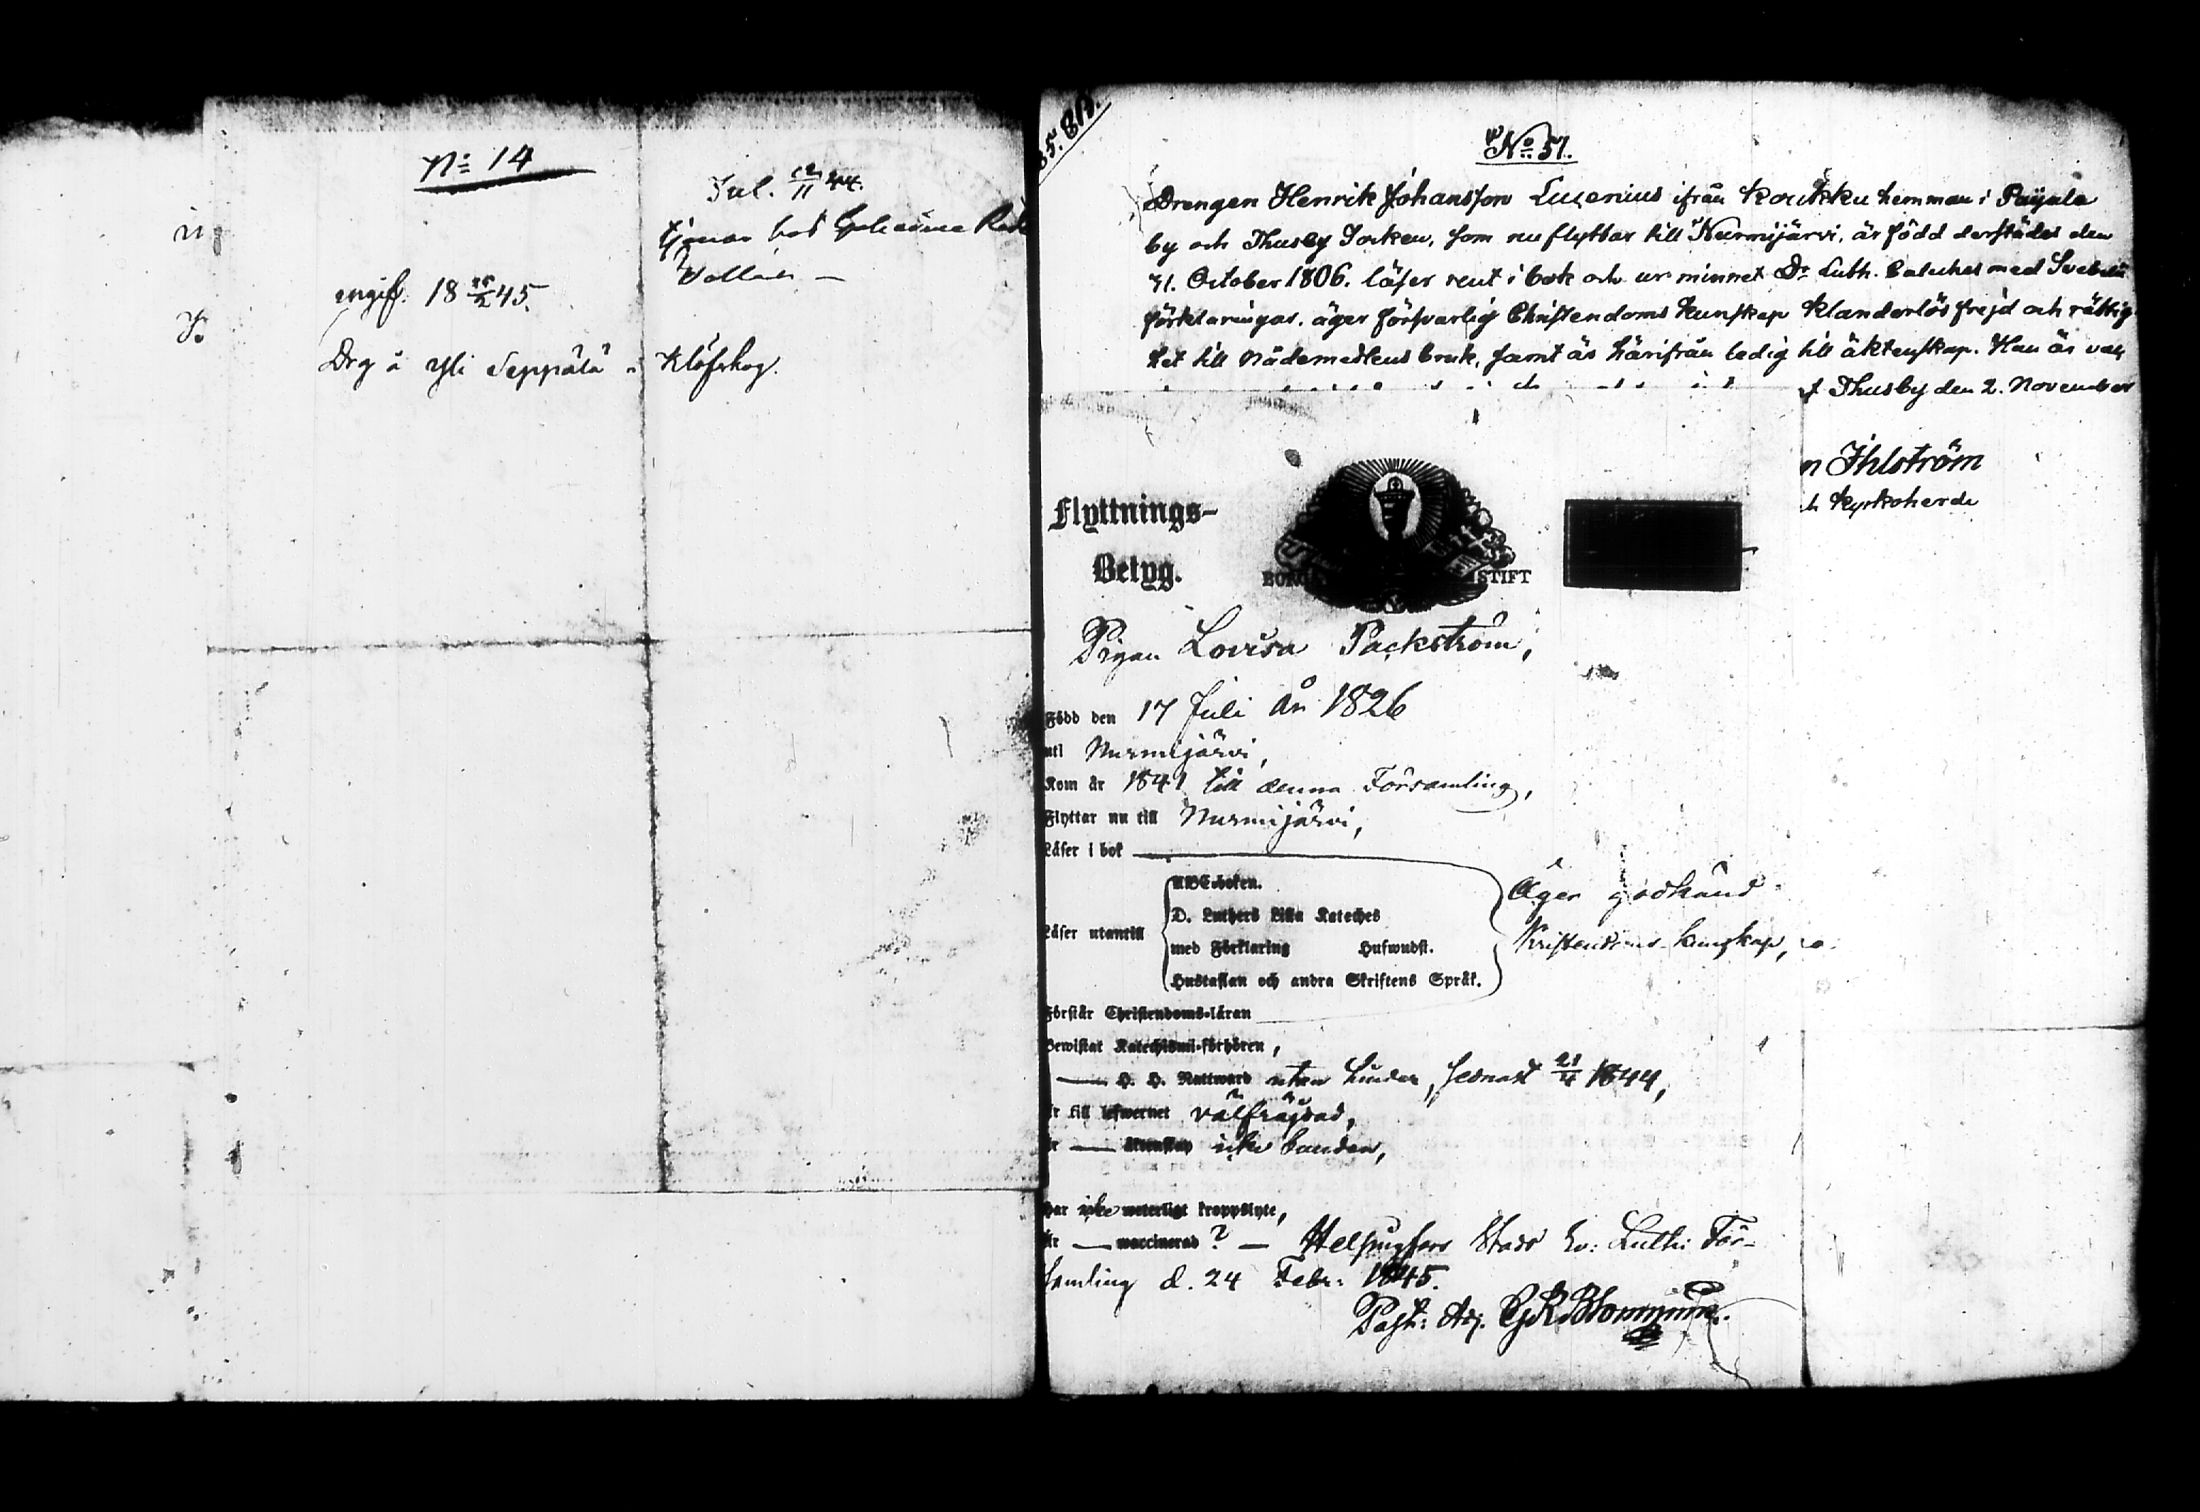 No 14
Inl. 12/11 44.
tjenar hos Geheime Råd
Wallén —
ingift. 18 25/2 45.
Drg å Yli Seppälä i Klöfskog.
No 51.
Drengen Henrik Johansson Lucenius ifrån Koukku hemman i Paijala
by och Thusby Socken, som nu flyttar till Nurmijärvi, är född derstädes den
31. October 1806. läser rent i bok och ur minnet Dr Luth. Cateches med Svebelii
förklaringar. äger försvarlig Christendoms kunskap klanderlös frejd och rättig-
het till Nådemedlens bruk, samt är härifrån ledig till äktenskap. Han är vac
Thusby den 2. November
n Ihlström
h Kyrkoherde
Flyttnings-
Betyg.
STIFT
Pigan Lovisa Packström,
Född den 17 Juli år 1826
uti Nurmijärvi,
Kom år 1841 till denna Församling,
Flyttar nu till Nurmijärvi,
Läser i bok
ABC-boken.
D. Luthers Lilla Kateches
Läser utantill
med Förklaring Hufwudst.
Hustaflan och andra Skriftens Språk.
Äger godkänd
Kristendoms kunskap,
Förstår Christendoms-läran
Bewistat Katechismi-förhören,
— H. H. Nattward utan hinder, sednast 21/4 1844,
Är till lefwernet välfräjdad,
Är — äktenskap icke bunden,
Har icke weterligt kroppslyte,
Är — waccinerad ? — Helsingfors Stads Ev: Luth: För-
samling d. 24 Febr: 1845.
Past: Adj.